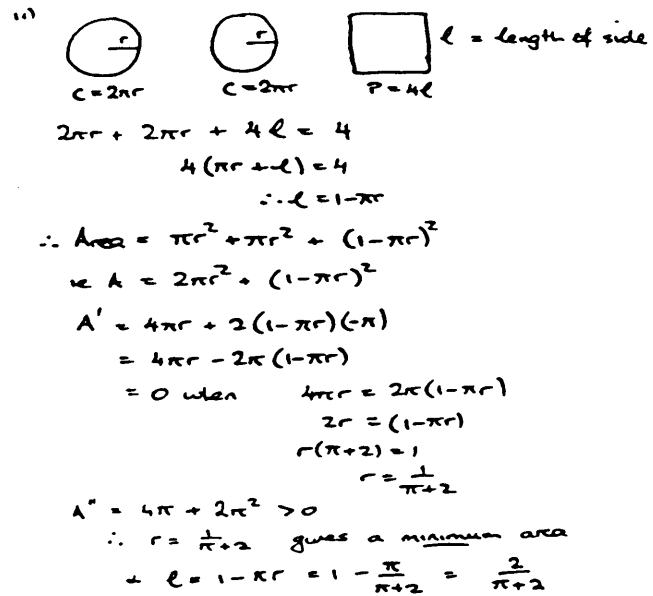 ii)
r r l = length of side
C = 2πr C = 2πr P = 4l
2πr + 2πr + 4l = 4
4(πr + l) = 4
∴ l = 1 - πr
∴ Area = πr² + πr² + (1 - πr)²
ie A = 2πr² + (1 - πr)²
A' = 4πr + 2(1 - πr)(-π)
= 4πr - 2π(1 - πr)
= 0 when 4πr = 2π(1 - πr)
2r = (1 - πr)
r(π + 2) = 1
r = 1/(π+2)
A" = 4π + 2π² > 0
∴ r = 1/(π+2) gives a minimum area
+ l = 1 - πr = 1 - π/(π+2) = 2/(π+2)